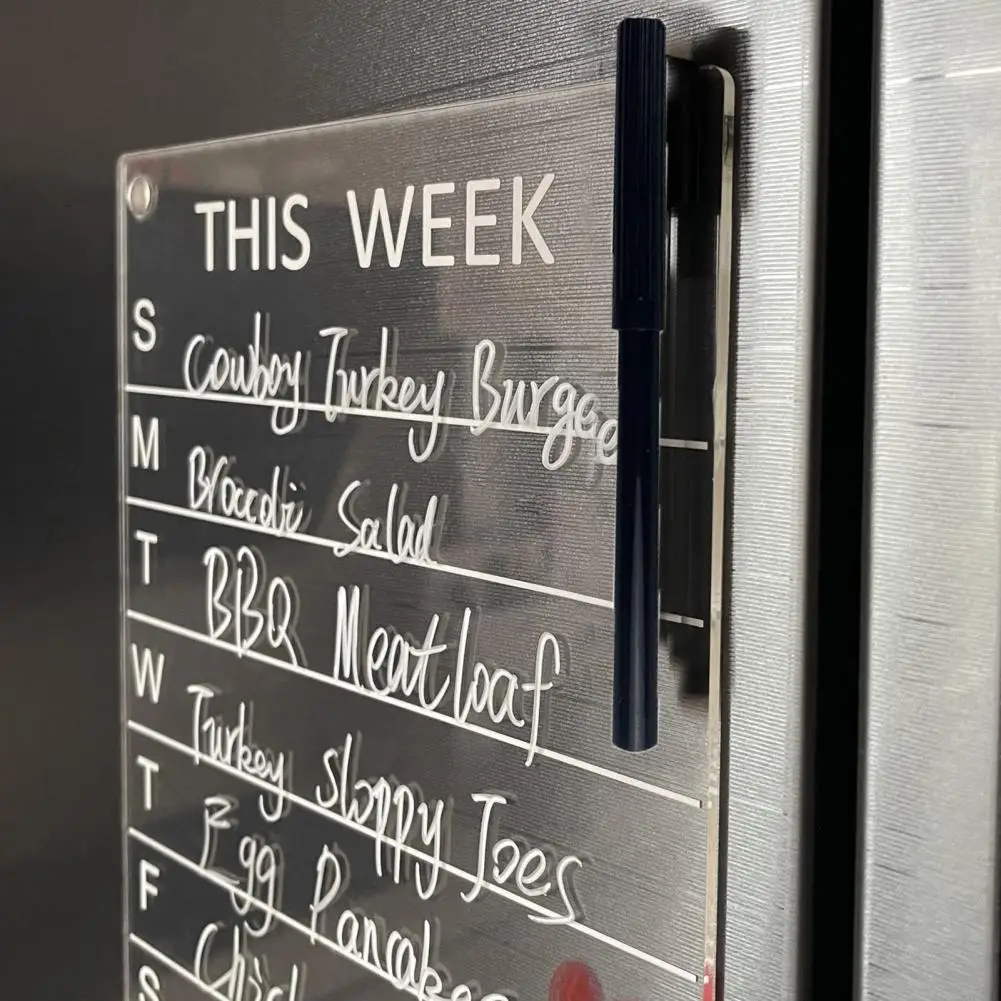 THIS WEEK
S Cowboy Turkey Burge
M Broccoli Salad
T BBQ Meatloaf
W Turkey Sloppy Joes
T Egg Pancake
F
S